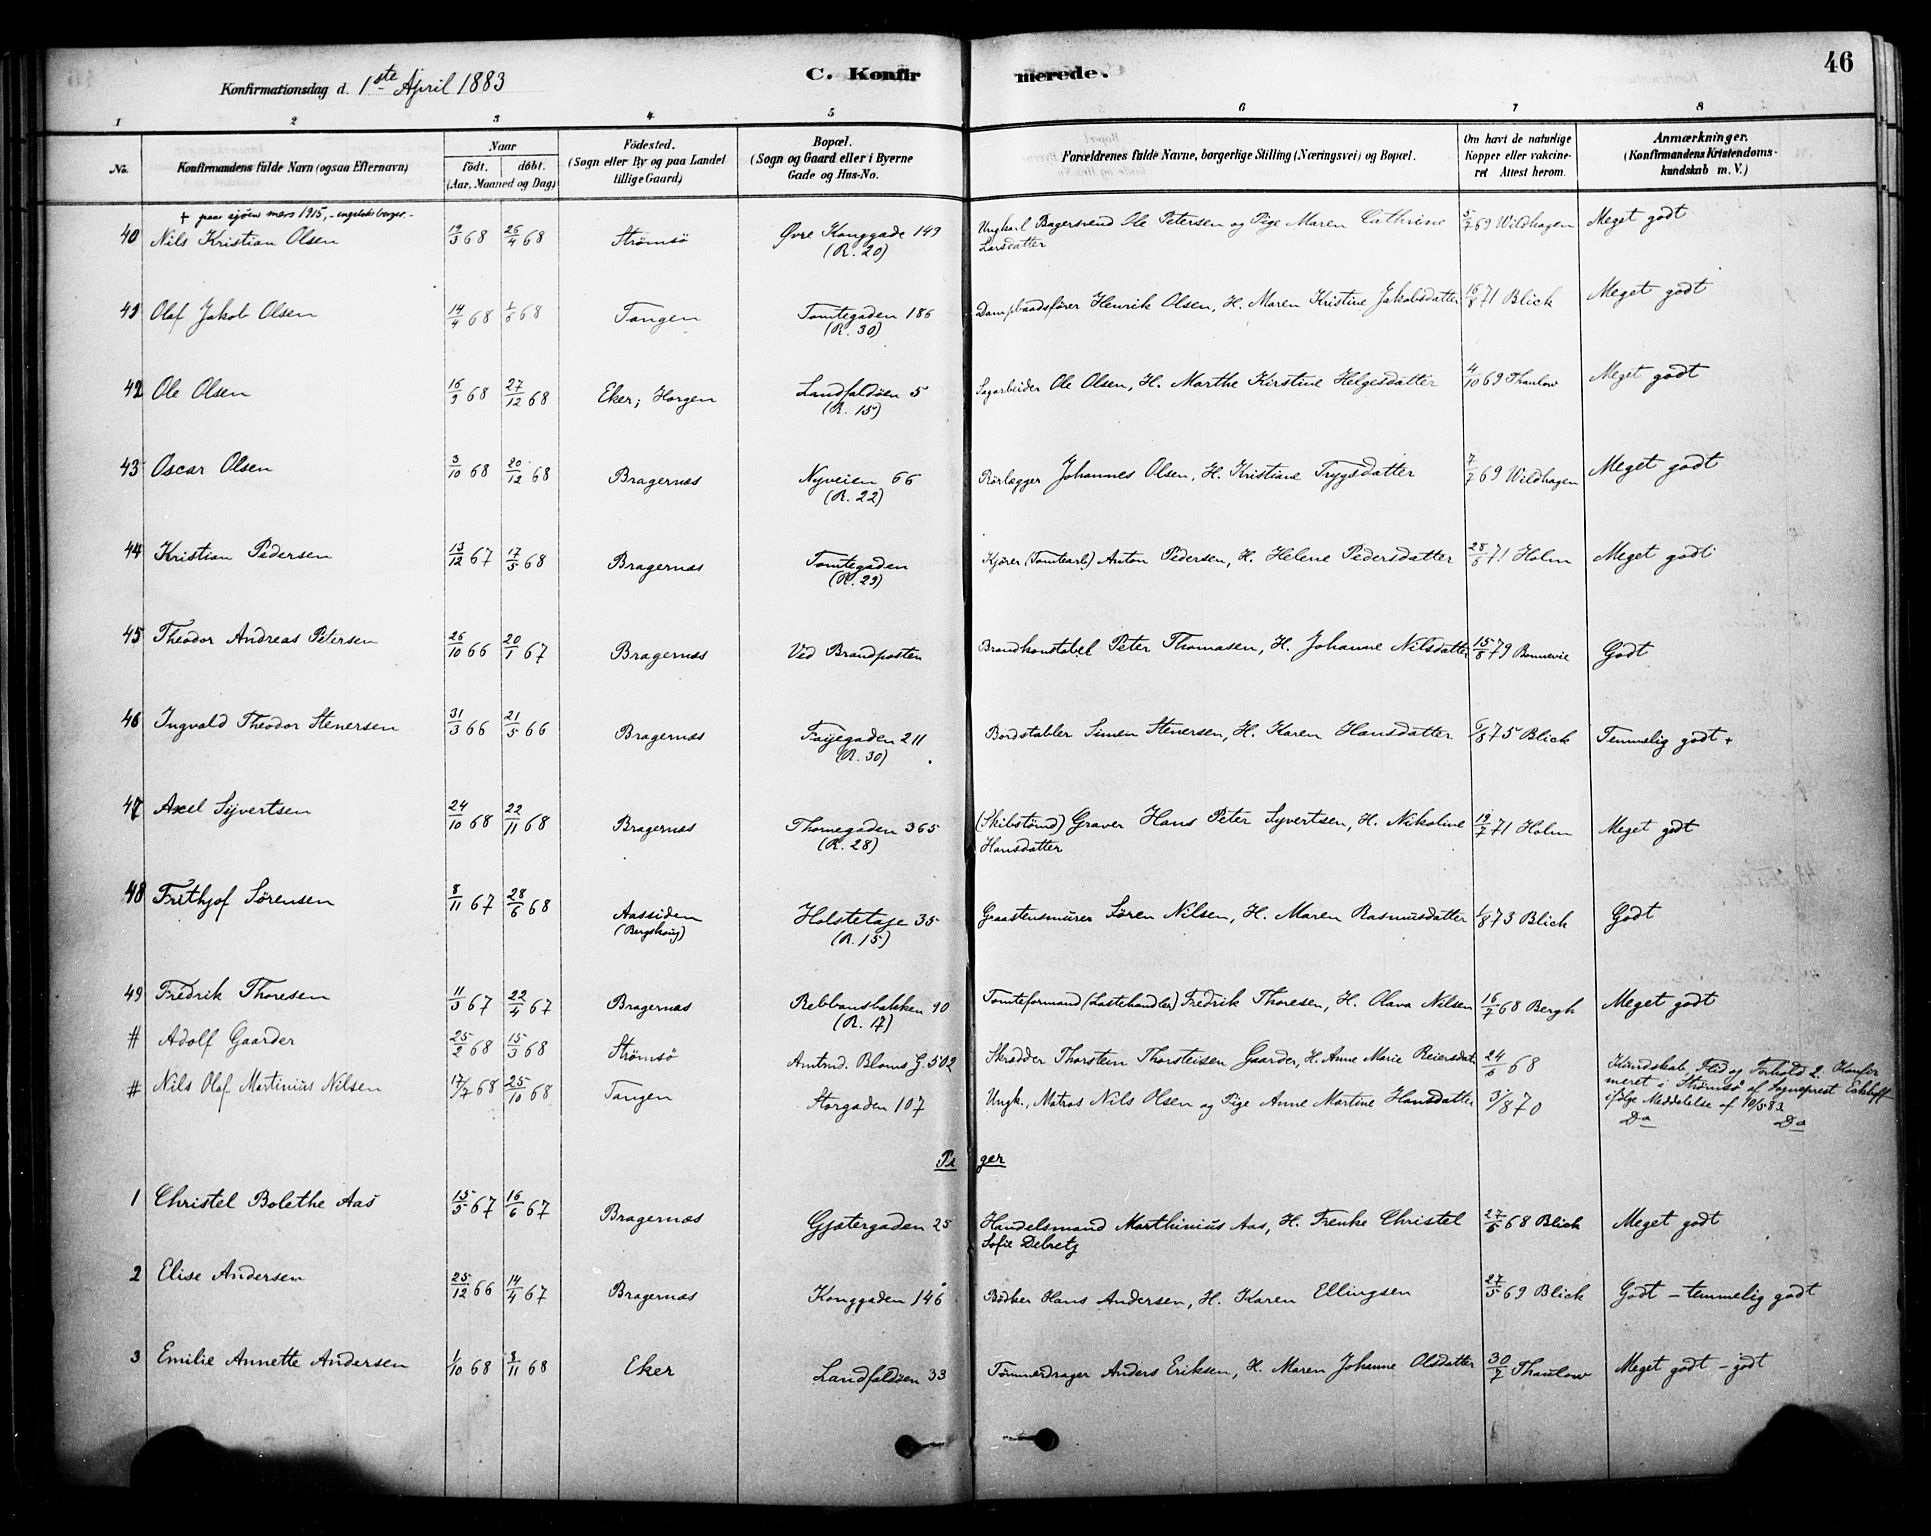 46
Konfirmationsdag d. 1ste April 1883
C. Konfirmerede.
1 2 3 4 5 6 7 8
No. Konfirmandens fulde Navn (ogsaa Efternavn) Naar födt. döbt. (Aar, Maaned og Dag) Födested. (Sogn eller By og paa Landet tillige Gaard) Bopæl. (Sogn og Gaard eller i Byerne Gade og Hus-No. Forældrenes fulde Navne, borgerlige Stilling (Næringsvei) og Bopæl. Om havt de naturlige Kopper eller vakcineret Attest herom. Anmærkninger. (Konfirmandens Kristendomskundskab m. V.)
+ paa sjøen mars 1915, - engelsk borger -
40 Nils Kristian Olsen 19/3 68 26/4 68 Strömsö Øvre Konggade 149 (R. 20) Ungkarl Bagersvend Ole Petersen og Pige Maren Cathrine Larsdatter 5/7 69 Wildhagen Meget godt
41 Olaf Jakob Olsen 14/4 68 1/6 68 Tangen Tomtegaden 186 (R. 30) Dampbaadsfører Henrik Olsen, H. Maren Kristine Jakobsdatter 16/8 71 Blick Meget godt
42 Ole Olsen 16/9 68 27/12 68 Eker; Horgen Landfaldöen 5 (R. 15) Sagarbeider Ole Olsen, H. Marthe Kirstine Helgesdatter 4/10 69 Thaulow Meget godt
43 Oscar Olsen 3/10 68 20/12 68 Bragernæs Nyveien 66 (R. 22) Rörlægger Johannes Olsen, H. Kristiane Trygsdatter 7/7 69 Wildhagen Meget godt
44 Kristian Pedersen 13/12 67 17/5 68 Bragernæs Tomtegaden (R. 29) Kjörer (Tomtearb.) Anton Pedersen, H. Helene Pedersdatter 28/6 71 Holm Meget godt
45 Theodor Andreas Petersen 26/10 66 20/1 67 Bragernæs Ved Brandposten Brandkonstabel Peter Thomasen, H. Johanne Nilsdatter 15/8 79 Bonnevie Godt
46 Ingvald Theodor Stenersen 31/3 66 21/5 66 Bragernæs Faijegaden 211 (R. 30) Bordstabler Simen Stenersen, H. Karen Hansdatter 6/8 75 Blick Temmelig godt +
47 Axel Syvertsen 24/10 68 22/11 68 Bragernæs Thornegaden 365 (R. 28) (Skibstömd) Graver Hans Peter Syvertsen, H. Nikoline Hansdatter 19/7 71 Holm Meget godt
48 Frithjof Sörensen 8/11 67 28/6 68 Aassiden (Bergskoug) Holstetaje 35 (R. 15) Graastensmurer Sören Nilsen, H. Maren Rasmusdatter 1/8 73 Blick Godt
49 Fredrik Thoresen 11/3 67 22/4 67 Bragernæs Rebbansbakken 90 (R. 17) Tomteformand (Lastehandler) Fredrik Thoresen, H. Olava Nilsen 16/7 68 Bergh Meget godt
# Adolf Gaarder 25/2 68 15/3 68 Strömsö Amtmd. Bloms G. 502 Skrædder Thorstein Thorsteisen Gaarder, H. Anne Marie Reiersdat. 24/6 68 Kundskab, Flid og Forhold 2. Konfirmeret i Strömsö af Sogneprest Eckhoff ifölge Meddelelse af 10/5 83.
# Nils Olaf Martinius Nilsen 17/7 68 25/10 68 Tangen Storgaden 107 Ungk., Matros Nils Olsen og Pige Anne Martine Hansdatter 3/8 70 Do Do
Piger
1 Christel Bolethe Aas 15/5 67 16/6 67 Bragernæs Gjætergaden 25 Handelsmand Marthinius Aas, H. Frenke Christel Sofie Debretz 27/6 68 Blick Meget godt
2 Elise Andersen 25/12 66 14/4 67 Bragernæs Konggaden 146 Bödker Hans Andersen, H. Karen Ellingsen 27/5 69 Blick Godt - temmelig godt
3 Emilie Annette Andersen 1/10 68 8/11 68 Eker Landfaldöen 33 Tömmerdrager Anders Eriksen, H. Maren Johanne Olsdatter 30/7 Thaulow Meget godt - godt